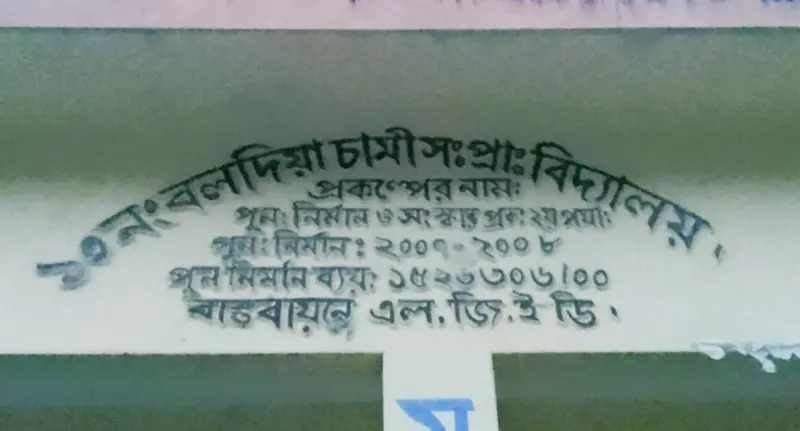 ১০ নং বলদিয়া চামী সঃ প্রাঃ বিদ্যালয়।
প্রকল্পের নামঃ
পুনঃ নির্মান ও সংস্কার প্রকঃ ২য় পর্যাঃ
পুনঃ নির্মান : ২০০৭-২০০৮
পুন নির্মান ব্যয়ঃ
বাস্তবায়নে এল. জি. ই ডি.